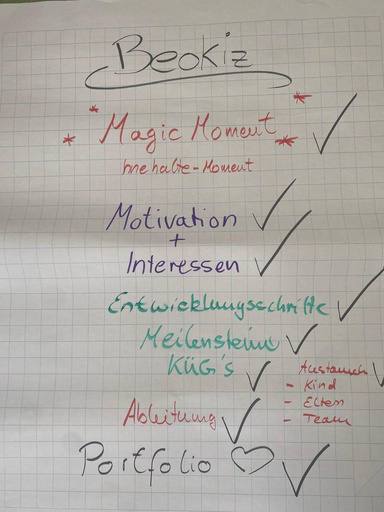 Beokiz
Magic Moment
Innehalte-Moment
Motivation
+
Interessen
Entwicklungsschritte
Meilensteine
KÜG's
Austausch
- Kind
- Eltern
- Team
Ableitung
Portfolio